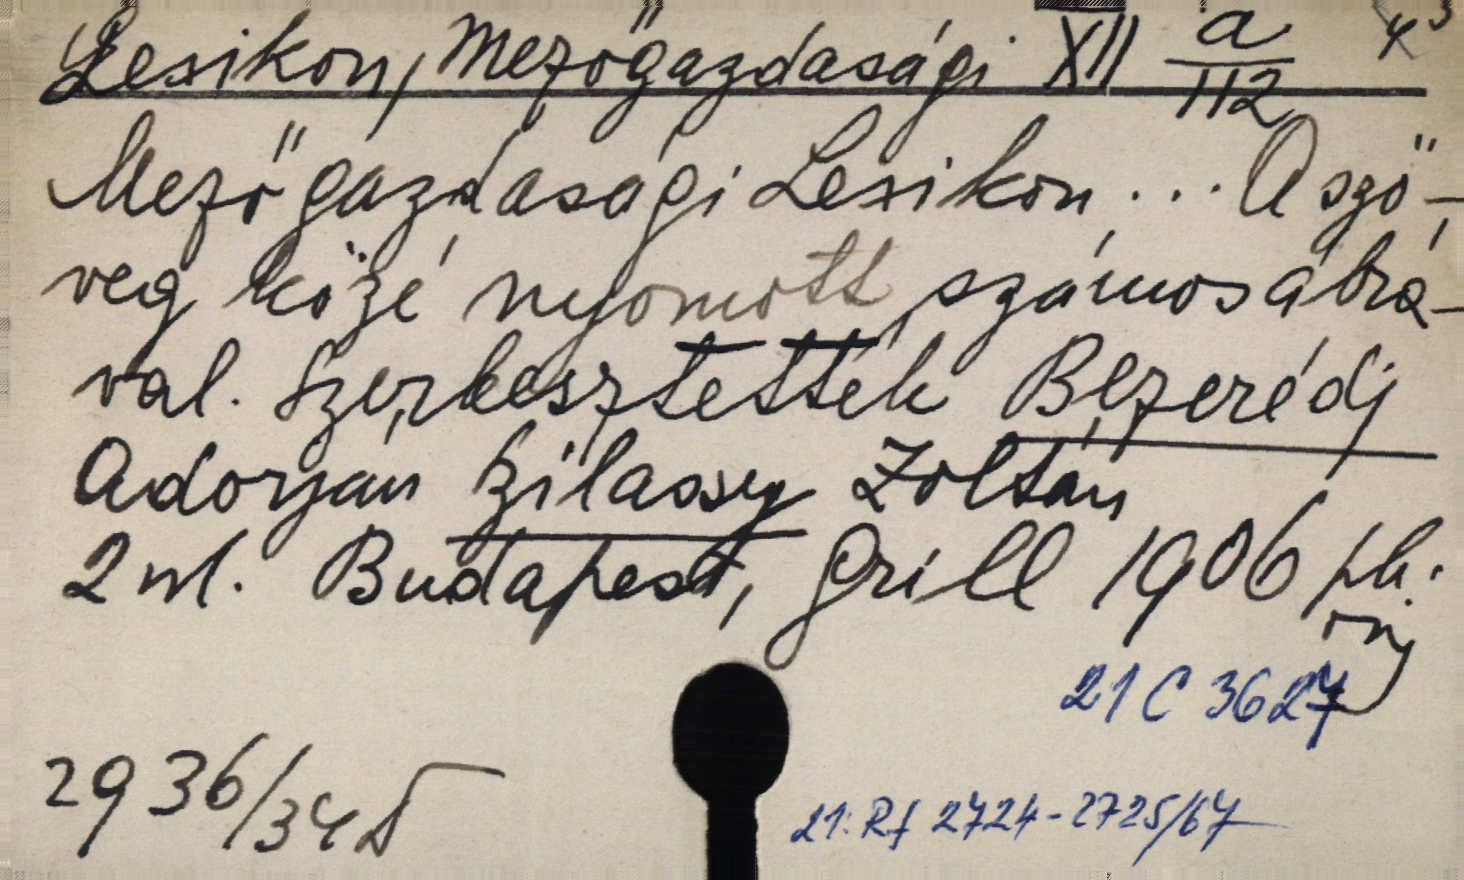 Lexikon, Mezőgazdasági XII a/112
Mezőgazdasági Lexikon ... A szö-
veg közé nyomott számos ábrá-
val. Szerkesztették Bezerédj
Adorján Szilassy Zoltán
2 vol. Budapest, Grill 1906 ph.
21 C 3627
2936/345
21: Rf 2724-2725/67